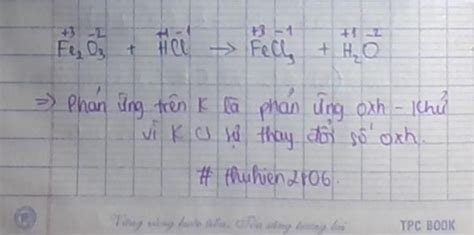 +3 -2 +1 -1 +3 -1 +1 -2
Fe₂O₃ + HCl → FeCl₃ + H₂O
⇒ Phản ứng trên K là phản ứng oxh - khử
vì K có sự thay đổi số oxh.
# thuhien2406.
TPC BOOK